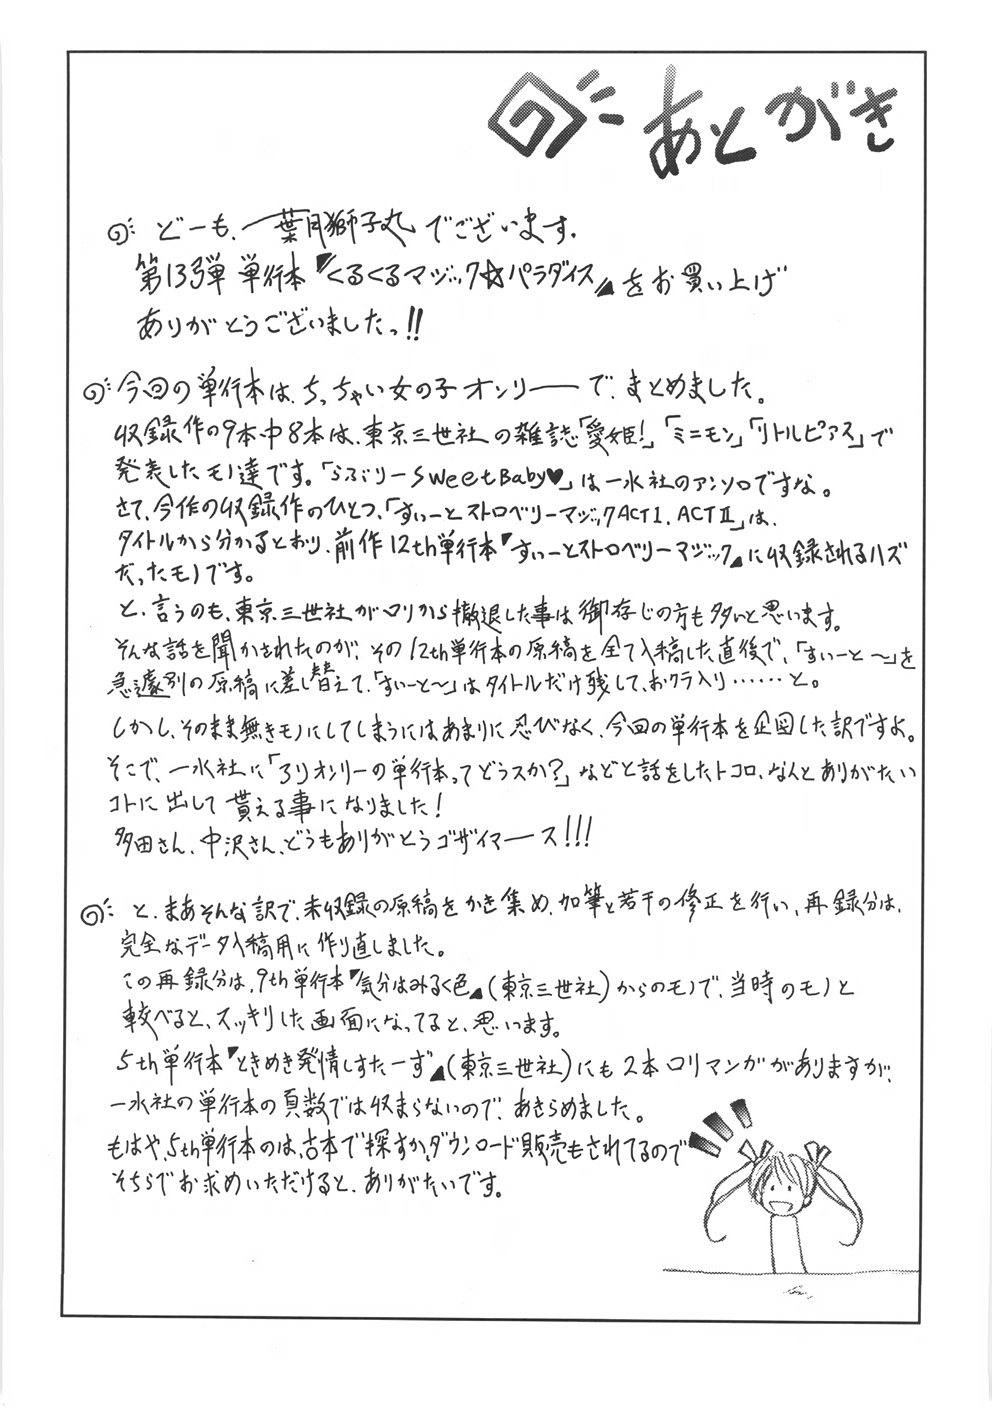 あとがき
どーも、一葉月獅子丸でございます。
第13弾 単行本『くるくるマジック☆パラダイス』をお買い上げ
ありがとうございましたっ!!
今回の単行本は、ちっちゃい女の子オンリーーで、まとめました。
収録作の9本中8本は、東京三世社の雑誌「愛姫!」「ミニモン」「リトルピアス」で
発表したモノ達です。「らぶりーSweetBaby♥」は一水社のアンソロですな。
さて、今作の収録作のひとつ、「すいーとストロベリーマジックACTⅠ.ACTⅡ」は、
タイトルから分かるとおり、前作12th単行本『すいーとストロベリーマジック』に収録されるハズ
だったモノです。
と、言うのも、東京三世社がロリから撤退した事は御存じの方も多いと思います。
そんな話を聞かされたのが、その12th単行本の原稿を全て入稿した直後で、「すいーと〜」を
急遽別の原稿に差し替えて、「すいーと〜」はタイトルだけ残して、おクラ入り……と。
しかし、そのまま無きモノにしてしまうにはあまりに忍びなく、今回の単行本を企図した訳ですよ。
そこで、一水社に「ろりオンリーの単行本ってどうスか?」などと話をしたトコロ、なんとありがたい
コトに出して貰える事になりました!
多田さん、中沢さん、どうもありがとうゴザイマース!!!
と、まあそんな訳で、未収録の原稿をかき集め、加筆と若干の修正を行い、再録分は、
完全なデータ入稿用に作り直しました。
この再録分は、9th単行本『気分はみるく色』(東京三世社)からのモノで、当時のモノと
較べると、スッキリした画面になってると、思います。
5th単行本『ときめき発情しすたーず』(東京三世社)にも2本ロリマンガがありますが、
一水社の単行本の頁数では収まらないので、あきらめました。
もはや、5th単行本のは、古本で探すか、ダウンロード販売もされてるので
そちらでお求めいただけると、ありがたいです。